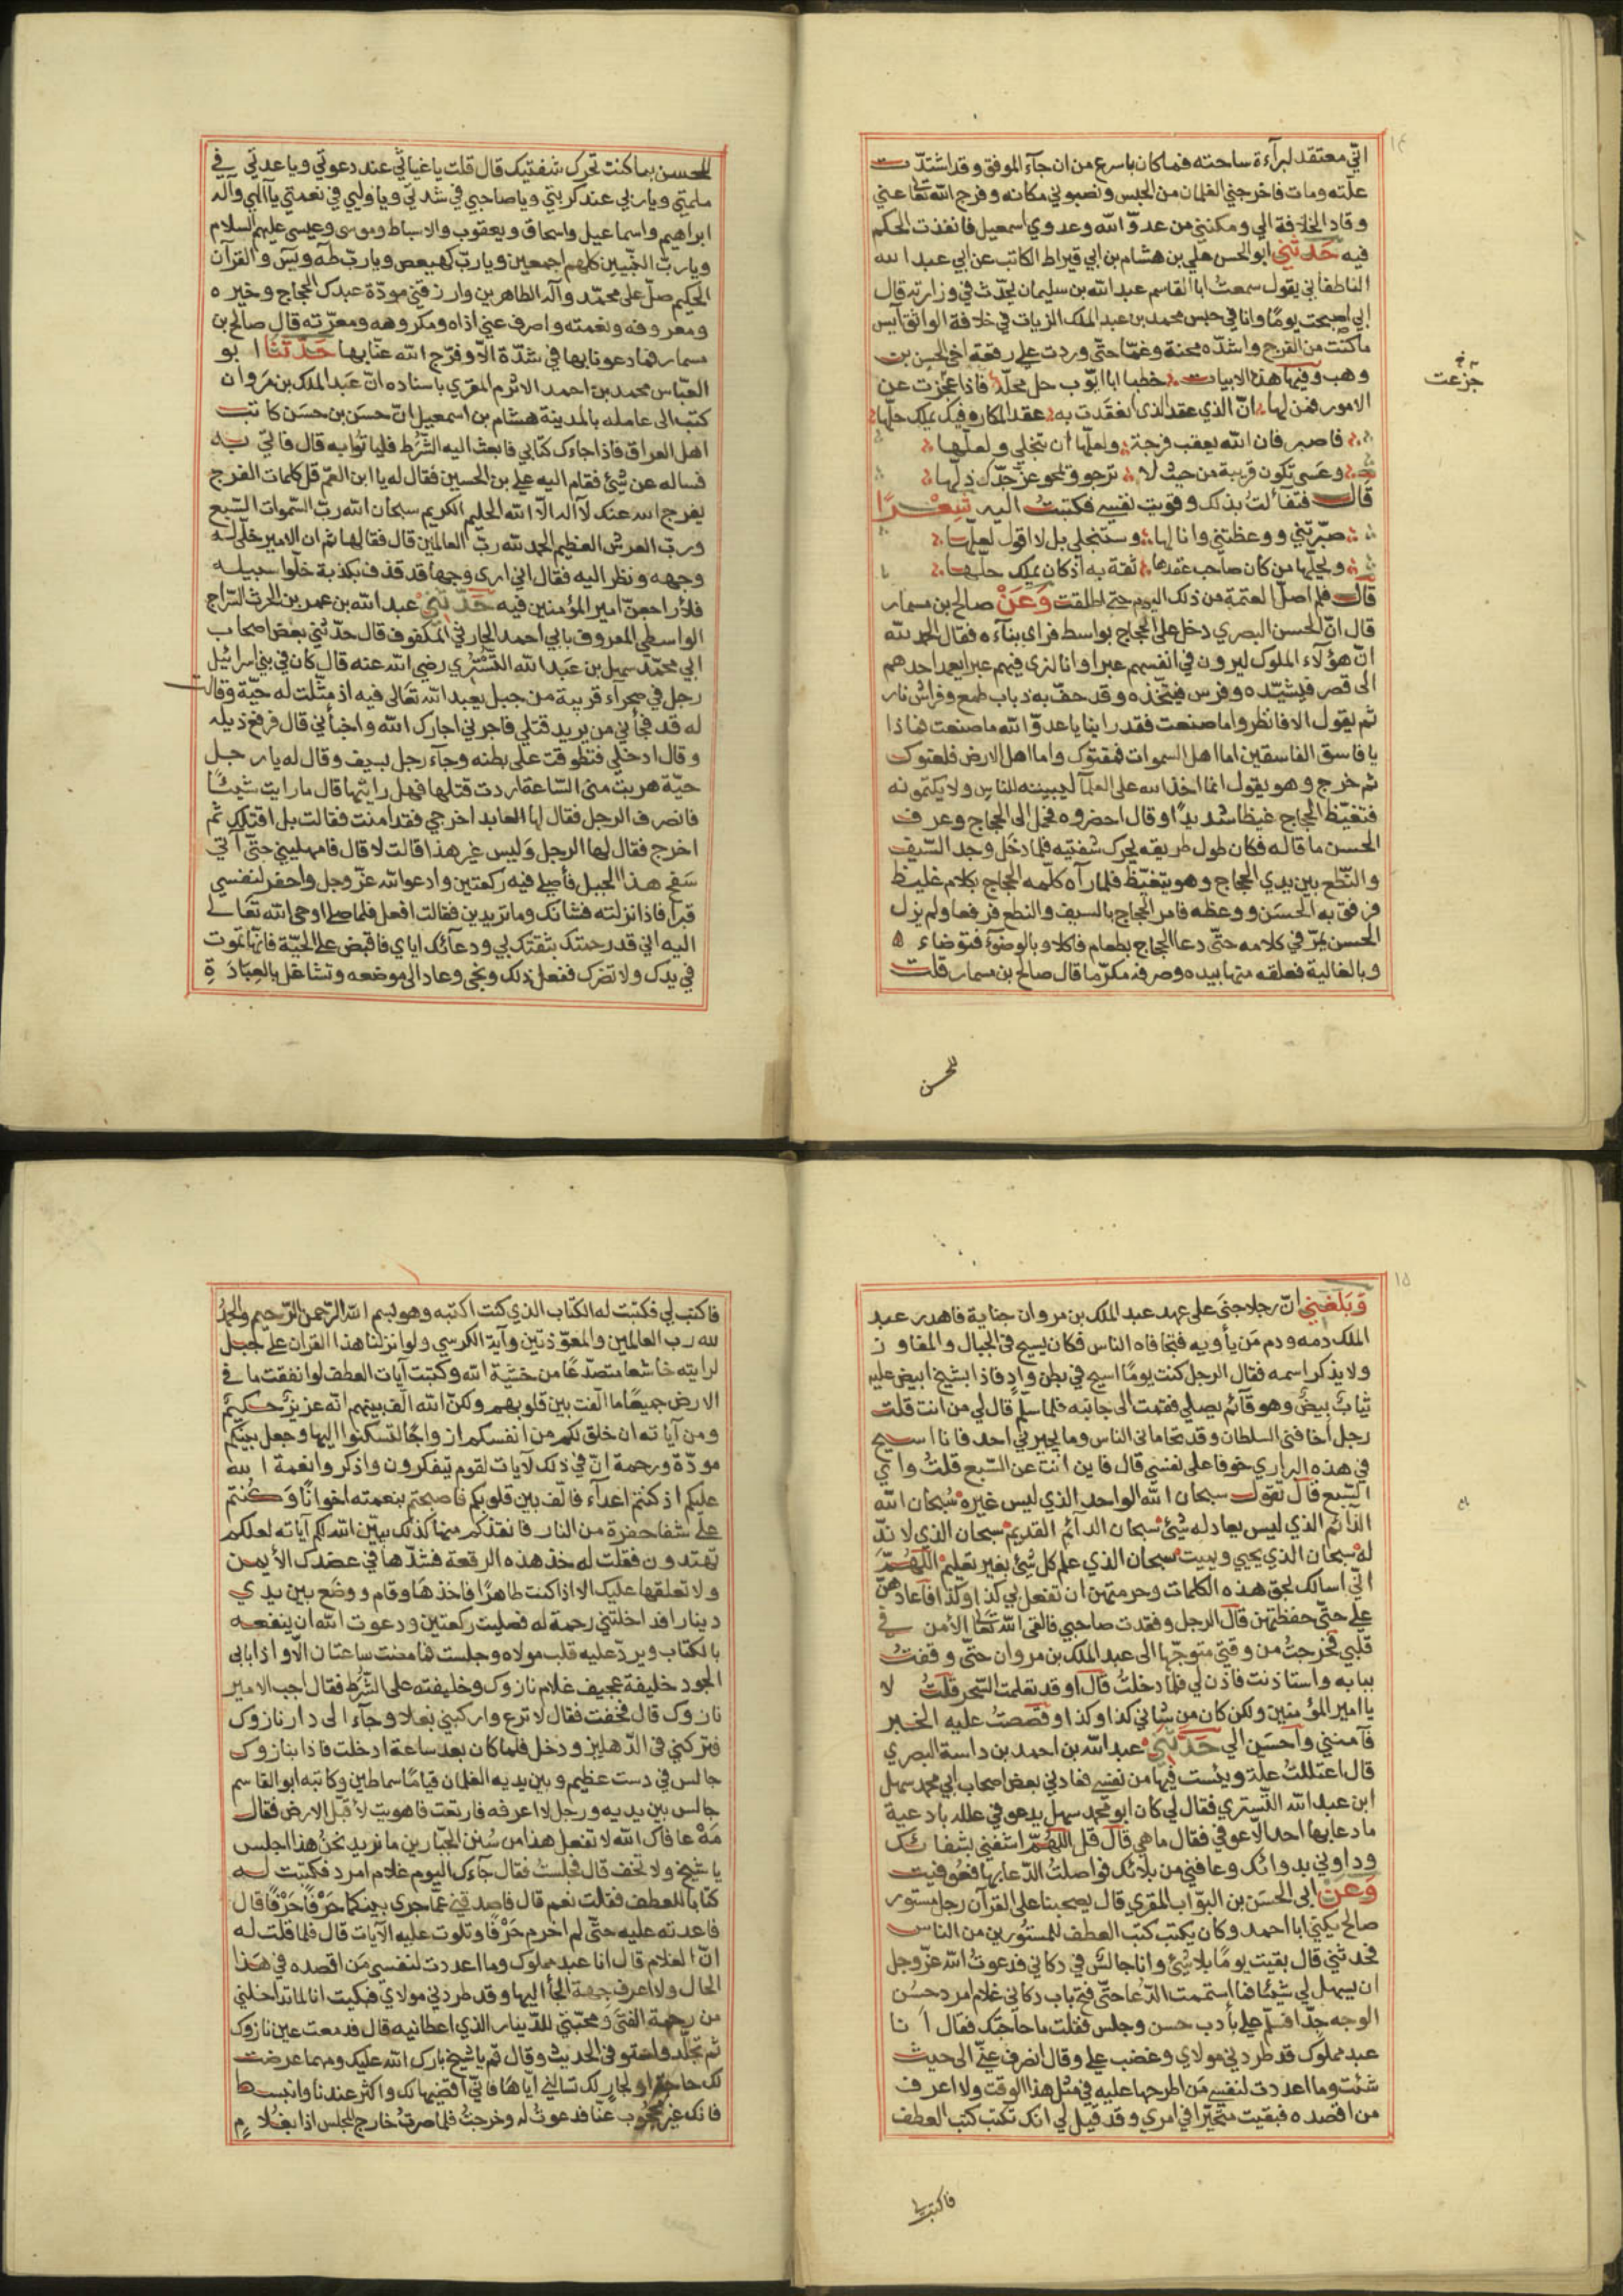 ١٤
اني معتقد لبراءة ساحته فما كان باسرع من ان جآء الموفق وقد اشتدت
علته ومات فاخرجني الغلمان من الحبس ونصبوني مكانه وفرج الله تعا عني
وقاد الخلافة الي ومكنني من عدوّ الله وعدوي اسمعيل فانفذت الحكم
فيه حَدثني ابو الحسن علي بن هشام بن ابي قيراط الكاتب عن ابي عبد الله
الناطفاني يقول سمعت ابا القاسم عبد الله بن سليمان يحدّث في وزارته قال
ابي اصبحت يومًا وانا في حبس محمد بن عبد الملك الزيات في خلافة الواثق آيس
ما كنت من الفرج واشدّه محنة وغمّا حتّى وردت علي رقعة اخي الحسن بن
وهب وفيها هذه الابيات خطبا ابا ايّوب حل محلّه فاذا عجزت عن
جزعت
الامور فمن لها انّ الذي عقد الذي انعقدت به عقد المكاره فيك يملك حلّها
فاصبر فان الله يعقب فرجة ولعلّها ان تنجلي ولعلّها
وعسى تكون قريبة من حيث لا ترجو وتمحو عن جدّك ذلّها
قال فتفألت بذلك وقويت نفسي فكتبت اليه شعرًا
صبّرتني ووعظتني وانا لها وستنجلي بل لا اقول لعلّها
ويحلّها من كان صاحب عقدها ثقة به اذ كان يملك حلّها
قال فلم اصلّ العتمة من ذلك اليوم حتى اطلقت وَعَنْ صالح بن مسمار
قال انّ الحسن البصري دخل على الحجاج بواسط فراى بنآءه فقال الحمد لله
انّ هؤلاء الملوك ليرون في انفسهم عبرا وانا لنرى فيهم عبرا يعمد احدهم
الى قصر فيشيّده وفرس فيتّخذه وقد حفّ به ذباب طمع وفراش نار
ثم يقول الا فانظروا ما صنعت فقد راينا يا عدوّ الله ما صنعت فماذا
يا فاسق الفاسقين اما اهل السموات فمقتوك واما اهل الارض فلعنوك
ثم خرج وهو يقول انما اخذ الله على العلمآ ليبيننه للناس ولا يكتمونه
فتغيّظ الحجاج غيظا شديدًا وقال احضروه فحمل الى الحجاج وعرف
الحسن ما قاله فكان طول طريقه يحرك شفتيه فلما دخل وجد السّيف
والنّطع بين يدي الحجاج وهو يتغيّظ فلما رآه كلّمه الحجاج بكلام غليظ
فرفق به الحسَن ووعظه فامر الحجاج بالسيف والنطع فرفعا ولم يزل
الحسن يمرّ في كلامه حتّى دعا الحجاج بطعام فاكلا وبالوضوء فتوضاء
وبالغالية فعلقه منها بيده وصرفه مكرّما قال صالح بن مسمار قلت
للحسن
للحسن بما كنت تحرك شفتيك قال قلت يا غياثي عند دعوتي ويا عدتي في
ملمتي ويا ربي عند كربتي ويا صاحبي في شدتي ويا وليي في نعمتي يا آلهي وآله
ابراهيم واسماعيل واسحاق ويعقوب والاسباط وموسى وعيسى عليهم السلام
ويا ربّ النّبيين كلهم اجمعين ويا ربّ كهيعص ويا ربّ طه ويس والقرآن
الحكيم صلّ على محمّد وآله الطاهرين وارزقني مودّة عبدك الحجاج وخيره
ومعروفه ونعمته واصرف عني اذاه ومكروهه ومعرّته قال صالح بن
مسمار فما دعونا بها في شدّة الّا وفرّج الله عنّا بها حَدّثنَا ابو
العبّاس محمد بن احمد الاثرم المقري باسناده انّ عبد الملك بن مروان
كتب الى عامله بالمدينة هشام بن اسمعيل انّ حسَن بن حسَن كاتب
اهل العراق فاذا جاءك كتابي فابعث اليه الشُرَط فلياتوا به قال فاتي به
فساله عن شئ فقام اليه علي بن الحسين فقال له يا ابن العمّ قل كلمات الفرج
يفرج الله عنك لآ اله الاّ الله الحليم الكريم سبحان الله ربّ السّموات السّبع
وربّ العرش العظيم الحمد لله ربّ العالمين قال فقالها ثم ان الامير خلّى له
وجهه ونظر اليه فقال اني ارى وجها قد قذف بكذبة خلّوا سبيله
فلأراجعنّ امير المؤمنين فيه حَدّثني عبد الله بن عمر بن الحرث السّراج
الواسطي المعروف بابي احمد الحارثي المكفوف قال حدّثني بعض اصحاب
ابي محمّد سهل بن عَبد الله التُسْتُري رضي الله عنه قال كان في بني اسرائيل
رجل في صحراء قريبة من جبل يعبد الله تعالى فيه اذ مثّلت له حيّة وقالت
له قد فجأني من يريد قتلي فاجرني اجارك الله واخبأني قال فرفع ذيله
وقال ادخلي فتطوقت على بطنه وجآء رجل بسيف وقال له يا رجل
حيّة هربت مني السّاعة اردت قتلها فهل رايتها قال ما رايت شيئًا
فانصرف الرجل فقال لها العابد اخرجي فقد امنت فقالت بل اقتلك ثم
اخرج فقال لها الرجل وَليس غير هذا قالت لا قال فامهليني حتّى آتي
سفح هذا الجبل فأصلي فيه ركعتين وادعو الله عزّ وجل واحفر لنفسي
قبرا فاذا نزلته فشانك وما تريدين فقالت افعل فلما صلى اوحى الله تعَالى
اليه اني قد رحمتك بثقتك بي ودعآئك اياي فاقبض على الحيّة فانها تموت
في يدك ولا تضرك ففعل ذلك ونجى وعاد الى موضعه وتشاغل بالعِبَادَةِ
١٥
وَبَلَغَني انّ رجلا جنَى على عهد عبد الملك بن مروان جناية فاهدر عبد
الملك دمه ودم مَن يأويه فتحافاه الناس فكان يسيح في الجبال والمفاوز
ولا يذكر اسمه فقال الرجل كنت يومًا اسيح في بطن وادٍ فاذا بشيخ ابيض عليه
ثيابٌ بيضٌ وهو قائم يصلي فقمت الى جانبه فلما سلّم قال لي من انت قلت
رجل اخافني السلطان وقد تحاماني الناس وما يجيرني احد فانا اسيح
في هذه البراري خوفا على نفسي قال فاين انت عن السّبع قلتُ واي
السّبع قال تقول سبحان الله الواحد الذي ليس غيره سُبحان الله
الدّائم الذي ليس يعادله شئ سبحان الدآئم القديم سبحان الذي لا ندّ
له سبحان الذي يحيي ويميت سبحان الذي علم كل شئ بغير تعليم اللهمَّ
انّي اسالك بحق هذه الكلمات وحرمتهن ان تفعل بي كذا وكذا فاعادهنّ
علي حتّى حفظتهن قال الرجل وفقدت صاحبي فالقى الله تعا الأمن في
قلبي فخرجتُ من وقتي متوجّها الى عبد الملك بن مروان حتّى وقفتُ
ببابه واستاذنت فاذن لي فلما دخلتُ قال او قد تعلمت السّحر قلتُ لا
يا امير المؤمنين ولكن كان من شاني كذا وكذا وقصصتُ عليه الخبر
فآمنني وآحسَن الي حَدّثني عبد الله بن احمد بن داسة البصري
قال اعتللتُ علة ويئست فيها من نفسي فعادني بعض اصحاب ابي محمد سهل
ابن عبد الله التّستري فقال لي كان ابو محمد سهل يدعو في علله بادعية
ما دعا بها احد الّا عوفي فقال ما هي قال قل اللهُمّ اشفني بشفائك
وداوني بدوائك وعافني من بلائك فواصلتُ الدّعا بها فعُوفيت
وَعَنْ ابي الحسَن بن البوّاب المقري قال يصحبنا على القرآن رجل مستور
صالح يكنى ابا احمد وكان يكتب كتب العطف للمستُورين من الناس
فحدثني قال بقيت يومًا بلا شئ وانا جالسٌ في دكاني فدعوتُ الله عزّ وجل
ان يسهل لي شيئا فما استممت الدّعا حتّى فتح باب دكاني غلام امرد حسَن
الوجه جدّا فسلّم علي بأدب حسن وجلس فقلت ما حاجتك فقال انا
عبد مملوك قد طردني مولاي وغضب علي وقال انصرف عنّي الى حيث
شئت وما اعددت لنفسي مَن اطرحها عليه في مثل هذا الوقت ولا اعرف
من اقصده فبقيت متحيّرا في امري وقد قيل لي انك تكتب كتب العطف
فاكتب لي
فاكتب لي فكتبت له الكتاب الذي كنت اكتبه وهو بسم الله الرّحمن الرّحيم والحمدُ
لله رب العالمين والمعوّذتين وآية الكرسي ولو انزلنا هذا القران على جبل
لرايته خاشعا متصدّعًا من خشية الله وكتبت آيات العطف لو انفقت ما في
الارض جميعًا ما الّفت بين قلوبهم ولكنّ الله الّف بينهم انّه عزيزٌ حكيمٌ
ومن آياته ان خلق لكم من انفسكم ازواجًا لتسكنوا اليها وجعل بينكم
مودّة ورحمة انّ في ذلك لآيات لقوم يتفكرون واذكروا نعمة الله
عليكم اذ كنتم اعدآء فالّف بين قلوبكم فاصبحتم بنعمته اخوانًا وَكنتم
على شفا حفرة من النار فانقذكم منها كذلك يبيّن الله لكم آياته لعلكم
تهتدون فقلت له خذ هذه الرقعة فشدّها في عضدك الأيمن
ولا تعلقها عليك الا اذا كنت طاهرًا فاخذها وقام ووضع بين يدي
دينارا فداخلتني رحمة له فصليت ركعتين ودعوت الله ان ينفعه
بالكتاب ويردّ عليه قلب مولاه وجلست فما مضت ساعتان الّا واذا بابي
الجود خليفة عجيف غلام نازوك وخليفته على الشُرَط فقال اجب الامير
نازوك قال فخفت فقال لا ترع واركبني بغلا وجآء الى دار نازوك
فتركني في الدّهليز ودخل فلما كان بعد ساعة ادخلت فاذا بنازوك
جالس في دست عظيم وبين يديه الغلمان قيامًا سماطين وكاتبه ابو القاسم
جالس بين يديه ورجل لا اعرفه فارتعت فاهويت لأقبّل الارض فقال
مَهْ عافاك الله لا تفعل هذا من سُنن الجبّارين ما نريد نحنُ هذا اجلس
يا شيخ ولا تخف قال فجلستُ فقال جآءك اليوم غلام امرد فكتبت له
كتابا للعطف فقلت نعم قال فاصدقني عمّا جرى بينكما حَرْفًا حَرْفًا قال
فاعدته عليه حتّى لم اخرم حَرْفا وتلوت عليه الآيات قال فلما قلت له
انّ الغلام قال انا عبد مملوك وما اعددت لنفسي مَن اقصده في هذا
الحال ولا اعرف جهة الجأ اليها وقد طردني مولاي فبكيت انا لما تداخلني
من رحمة الفتَى وَمحبّتي للدّينار الذي اعطانيه قال فدمعت عين نازوك
ثم تجلّد واستوفى الحديث وقال قم يا شيخ بارك الله عليك ومهما عرضت
لك حاجة او لجارٍ لك تسالني ايّاها فانّي اقضيها لك واكثر عندنا وانبسط
فانك غير محجوب عنّا فدعوتُ له وخرجتُ فلما صرتُ خارج المجلس اذا بغلامٍ